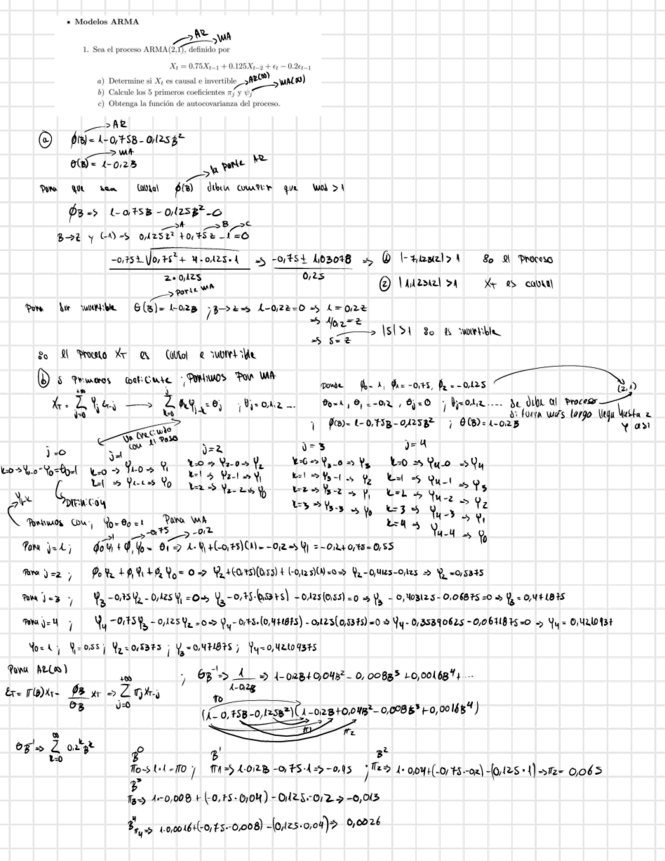 • Modelos ARMA
→ AR → MA
1. Sea el proceso ARMA(2,1), definido por
X_t = 0.75X_{t−1} + 0.125X_{t−2} + ϵ_t − 0.2ϵ_{t−1}
a) Determine si X_t es causal e invertible → AR(∞) → MA(∞)
b) Calcule los 5 primeros coeficientes π_j y ψ_j
c) Obtenga la función de autocovarianza del proceso.
ⓐ → AR
ϕ(B) = 1-0,75B-0,125B²
→ MA
θ(B) = 1-0,2B
→ la parte AR
Para que sea causal ϕ(B) deben cumplir que mod > 1
ϕB => 1-0,75B-0,125B²=0
→ A → B → C
B→Z y (-1) => 0,125Z² + 0,75Z - 1 = 0
-0,75±√0,75² + 4·0,125·1 / 2·0,125 => -0,75 ± 1,03078 / 0,25 => ① |-7,12312| > 1 So el proceso
② |1,12312| > 1 X_T es causal
→ Parte MA
Para ser invertible θ(B) = 1-0,2B ; B→Z => 1-0,2Z=0 => 1=0,2Z
=> 1/0,2=Z
=> 5=Z → |5| > 1 So es invertible
So el proceso X_T es causal e invertible
ⓑ 5 primeros coeficiente ; Partimos por MA
donde ϕ₀=1, ϕ₁=-0,75, ϕ₂=-0,125 (2,1)
θ₀=1, θ₁=-0,2, θ_j=0 ; se debe al proceso
si fuera más largo llega hasta 2 y así
; ϕ(B) = 1-0,75B-0,125B² ; θ(B) = 1-0,2B
Un creciendo con el paso
j=0 j=1 j=2 j=3 j=4
k=0→Ψ₀₋₀→Ψ₀=θ₀=1 k=0→Ψ₁₋₀→Ψ₁ k=0→Ψ₂₋₀→Ψ₂ k=0→Ψ₃₋₀→Ψ₃ k=0→Ψ₄₋₀→Ψ₄
k=1→Ψ₁₋₁→Ψ₀ k=1→Ψ₂₋₁→Ψ₁ k=1→Ψ₃₋₁→Ψ₂ k=1→Ψ₄₋₁→Ψ₃
k=2→Ψ₂₋₂→Ψ₀ k=2→Ψ₃₋₂→Ψ₁ k=2→Ψ₄₋₂→Ψ₂
Definición k=3→Ψ₃₋₃→Ψ₀ k=3→Ψ₄₋₃→Ψ₁
k=4→Ψ₄₋₄→Ψ₀
Partimos con; Ψ₀=θ₀=1 Para MA
-0,75 -0,2
Para j=1; ϕ₀Ψ₁+ϕ₁Ψ₀=θ₁ => 1·Ψ₁+(-0,75)(1)=-0,2 => Ψ₁=-0,2+0,75=0,55
Para j=2; ϕ₀Ψ₂+ϕ₁Ψ₁+ϕ₂Ψ₀=0 => Ψ₂+(-0,75)(0,55)+(-0,125)(1)=0 => Ψ₂-0,4125-0,125 => Ψ₂=0,5375
Para j=3; Ψ₃-0,75Ψ₂-0,125Ψ₁=0 => Ψ₃-0,75·(0,5375)-0,125(0,55)=0 => Ψ₃-0,403125-0,06875=0 => Ψ₃=0,471875
Para j=4; Ψ₄-0,75Ψ₃-0,125Ψ₂=0 => Ψ₄-0,75·(0,471875)-0,125(0,5375)=0 => Ψ₄-0,35390625-0,0671875=0 => Ψ₄=0,4210937
Ψ₀=1; Ψ₁=0,55; Ψ₂=0,5375; Ψ₃=0,471875; Ψ₄=0,42109375
Para AR(∞)
ε_T=π(B)X_T= ϕB/θB X_T => ∑_{j=0}^{+∞} π_jX_{T-j} ; θB⁻¹ => 1/1-0,2B => 1-0,2B+0,04B²-0,008B³+0,0016B⁴+...
π₀
(1-0,75B-0,125B²)(1-0,2B+0,04B²-0,008B³+0,0016B⁴)
π₁ π₂
θB⁻¹ => ∑_{k=0}^{∞} 0,2^k B^k
B⁰ B¹ B²
π₀=>1·1=π₀; π₁=>1·0,2B-0,75·1=>-0,95; π₂=>1·0,04+(-0,75·-0,2)-(0,125·1)=>π₂=0,065
B³
π₃=>1·-0,008+(-0,75·0,04)-0,125·-0,2=>-0,013
B⁴
π₄=>1·0,0016+(-0,75·-0,008)-(0,125·0,04)=>0,0026